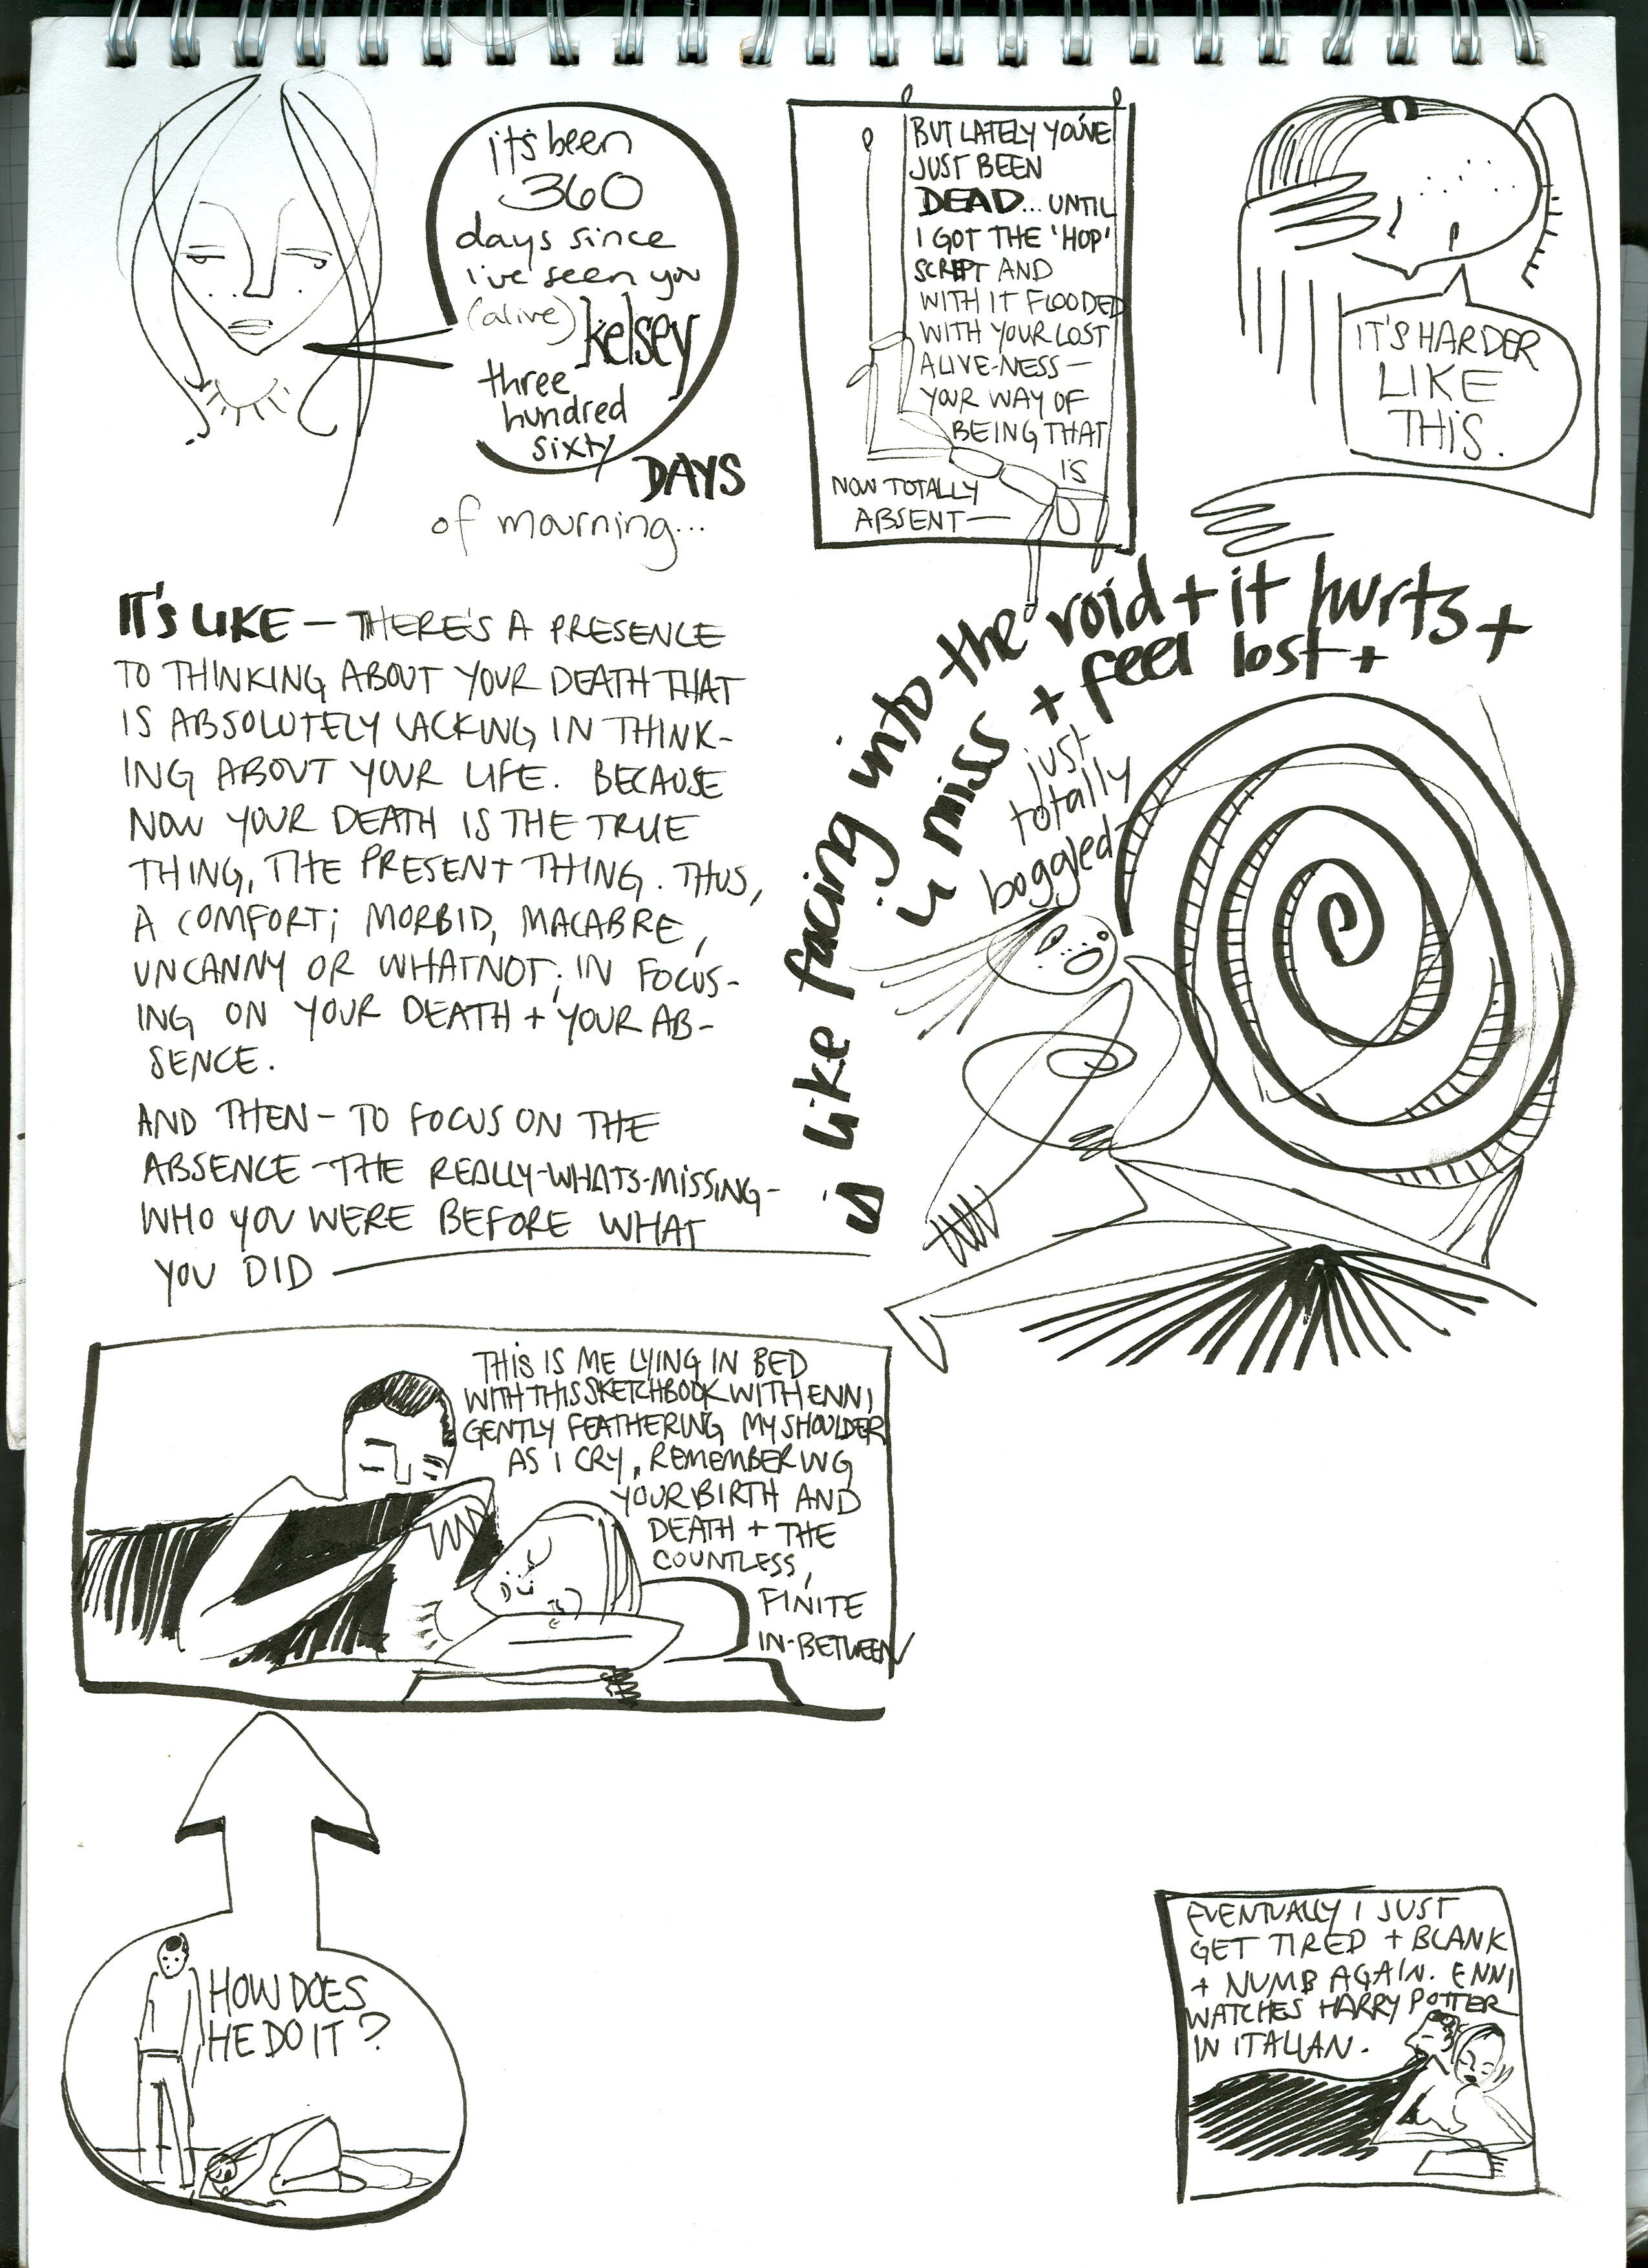 it's been
360
days since
i've seen you
(alive)
kelsey
three
hundred
sixty
DAYS
of mourning...
BUT LATELY YOU'VE
JUST BEEN
DEAD... UNTIL
I GOT THE 'HOP'
SCRIPT AND
WITH IT FLOODED
WITH YOUR LOST
ALIVE-NESS—
YOUR WAY OF
BEING THAT
IS
NOW TOTALLY
ABSENT—
IT'S HARDER
LIKE
THIS.
IT'S LIKE — THERE'S A PRESENCE
TO THINKING ABOUT YOUR DEATH THAT
IS ABSOLUTELY LACKING IN THINK-
ING ABOUT YOUR LIFE. BECAUSE
NOW YOUR DEATH IS THE TRUE
THING, THE PRESENT THING. THUS,
A COMFORT; MORBID, MACABRE,
UNCANNY OR WHATNOT; IN FOCUS-
ING ON YOUR DEATH + YOUR AB-
SENCE.
AND THEN — TO FOCUS ON THE
ABSENCE — THE REALLY-WHATS-MISSING-
WHO YOU WERE BEFORE WHAT
YOU DID —
is like facing into the void + it hurts +
u miss + feel lost +
just
totally
boggled
THIS IS ME LYING IN BED
WITH THIS SKETCHBOOK WITH ENNI
GENTLY FEATHERING MY SHOULDER
AS I CRY, REMEMBERING
YOUR BIRTH AND
DEATH + THE
COUNTLESS,
FINITE
IN-BETWEEN
HOW DOES
HE DO IT?
EVENTUALLY I JUST
GET TIRED + BLANK
+ NUMB AGAIN. ENNI
WATCHES HARRY POTTER
IN ITALIAN.